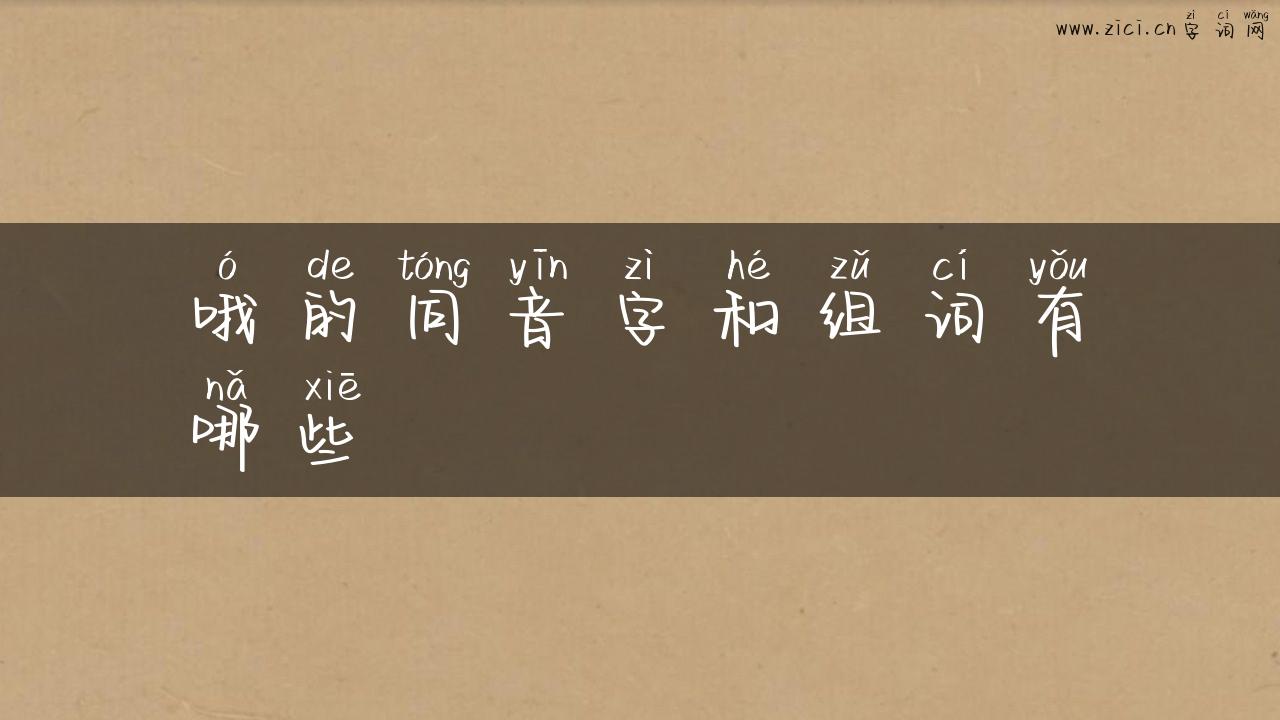 zì cí wǎng
www.zici.cn 字词网
ó de tóng yīn zì hé zǔ cí yǒu
哦的同音字和组词有
nǎ xiē
哪些